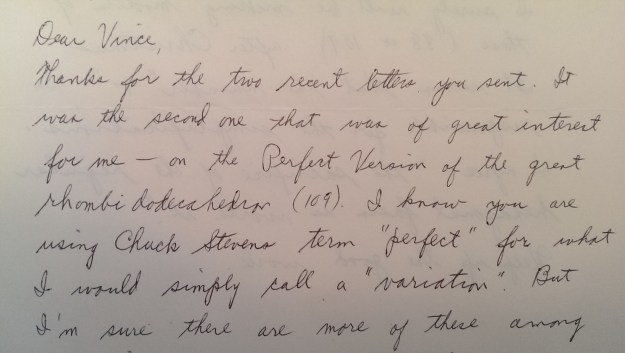 Dear Vince,
Thanks for the two recent letters you sent. It
was the second one that was of great interest
for me — on the Perfect Version of the great
rhombidodecahedron (109). I know you are
using Chuck Stevens term "perfect" for what
I would simply call a "variation". But
I'm sure there are more of these among